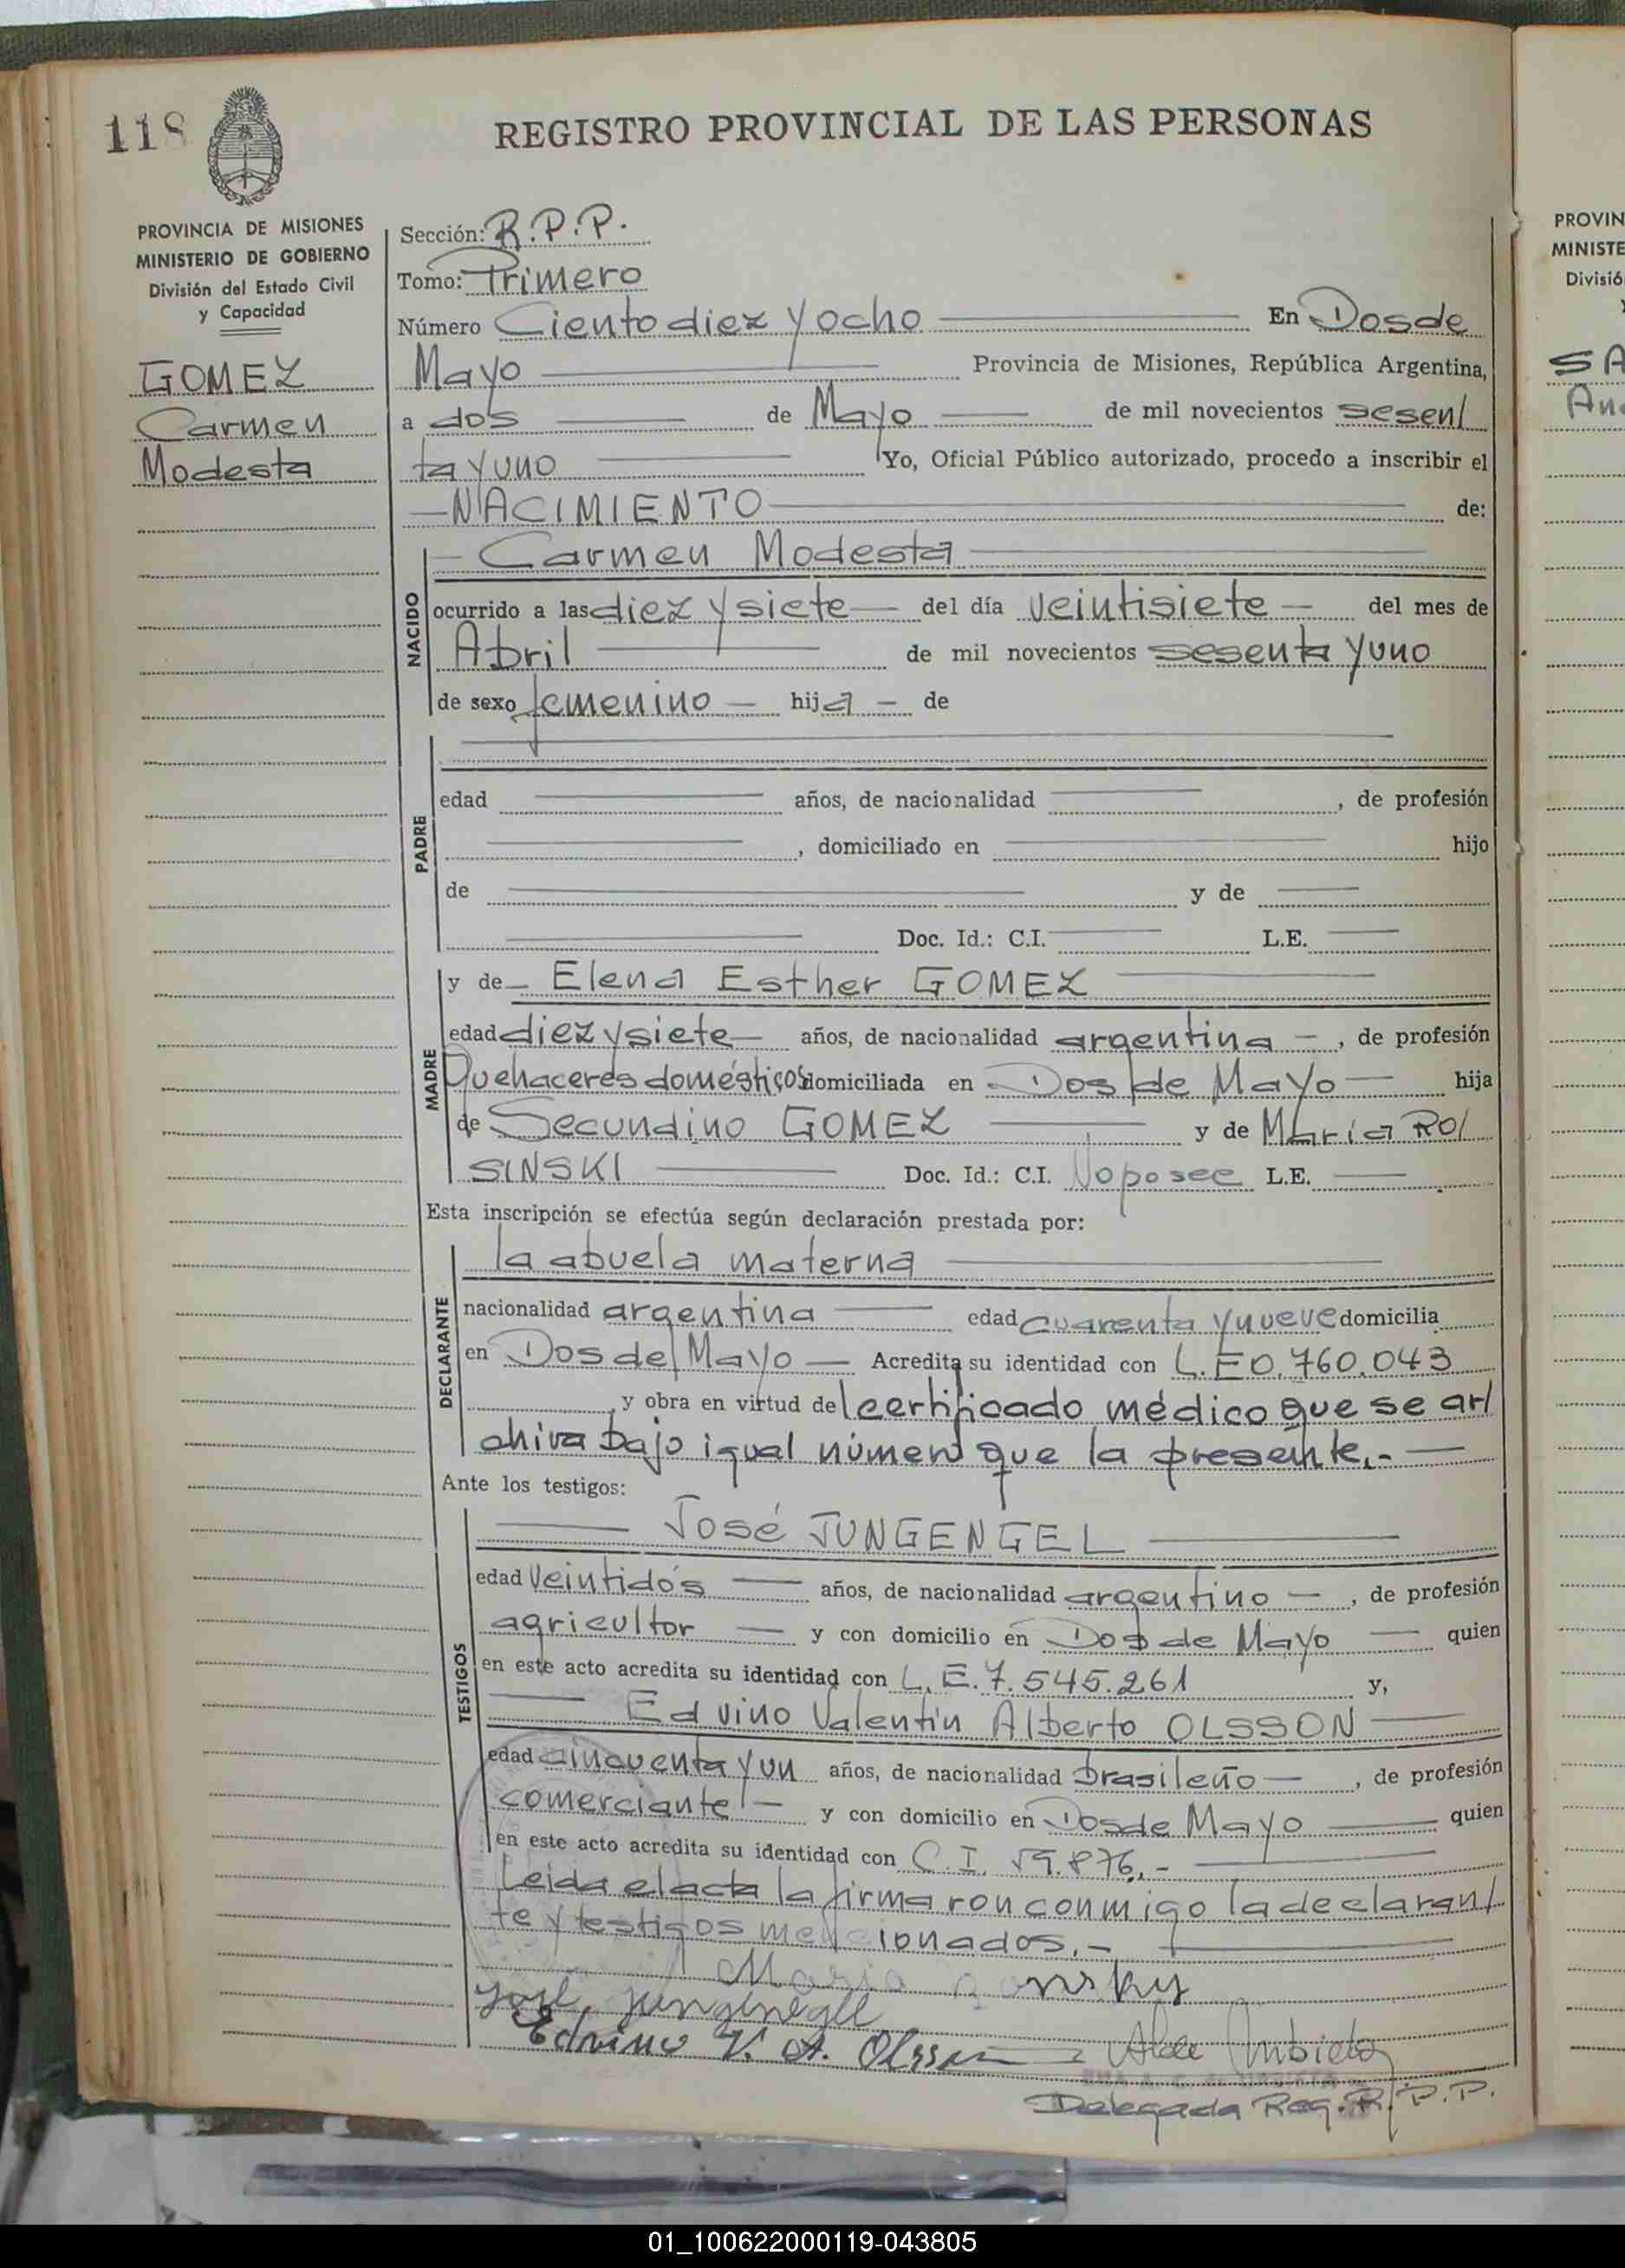 118
REGISTRO PROVINCIAL DE LAS PERSONAS
PROVINCIA DE MISIONES
MINISTERIO DE GOBIERNO
División del Estado Civil
y Capacidad
GOMEZ
Carmen
Modesta
Sección: R.P.P.
Tomo: Primero
Número Ciento diez y ocho En Dos de
Mayo Provincia de Misiones, República Argentina,
a dos de Mayo de mil novecientos sesen/
ta y uno Yo, Oficial Público autorizado, procedo a inscribir el
NACIMIENTO de:
NACIDO
Carmen Modesta
ocurrido a las diez y siete del día veintisiete del mes de
Abril de mil novecientos sesenta y uno
de sexo femenino hija de
PADRE
edad años, de nacionalidad , de profesión
, domiciliado en hijo
de y de
Doc. Id.: C.I. L.E.
MADRE
y de Elena Esther GOMEZ
edad diez y siete años, de nacionalidad argentina , de profesión
Quehaceres domésticos domiciliada en Dos de Mayo hija
de Secundino GOMEZ y de María RO/
SINSKI Doc. Id.: C.I. No posee L.E.
Esta inscripción se efectúa según declaración prestada por:
DECLARANTE
la abuela materna
nacionalidad argentina edad cuarenta y nueve domicilia
en Dos de Mayo Acredita su identidad con L.E 0.760.043
y obra en virtud del certificado médico que se ar/
chiva bajo igual número que la presente.-
Ante los testigos:
TESTIGOS
José JUNGENGEL
edad veintidós años, de nacionalidad argentino , de profesión
agricultor y con domicilio en Dos de Mayo quien
en este acto acredita su identidad con L.E. 7.545.261 y,
Edvino Valentín Alberto OLSSON
edad cincuenta y un años, de nacionalidad brasileño , de profesión
comerciante y con domicilio en Dos de Mayo quien
en este acto acredita su identidad con C.I. 59.876.-
Leida el acta la firmaron conmigo la declaran/
te y testigos mencionados.-
Maria
José Jungengel
Edvino V. A. Olsson
Delegada Reg. R.P.P.
PROVIN
MINISTE
Divisió
SA
An
01_100622000119-043805